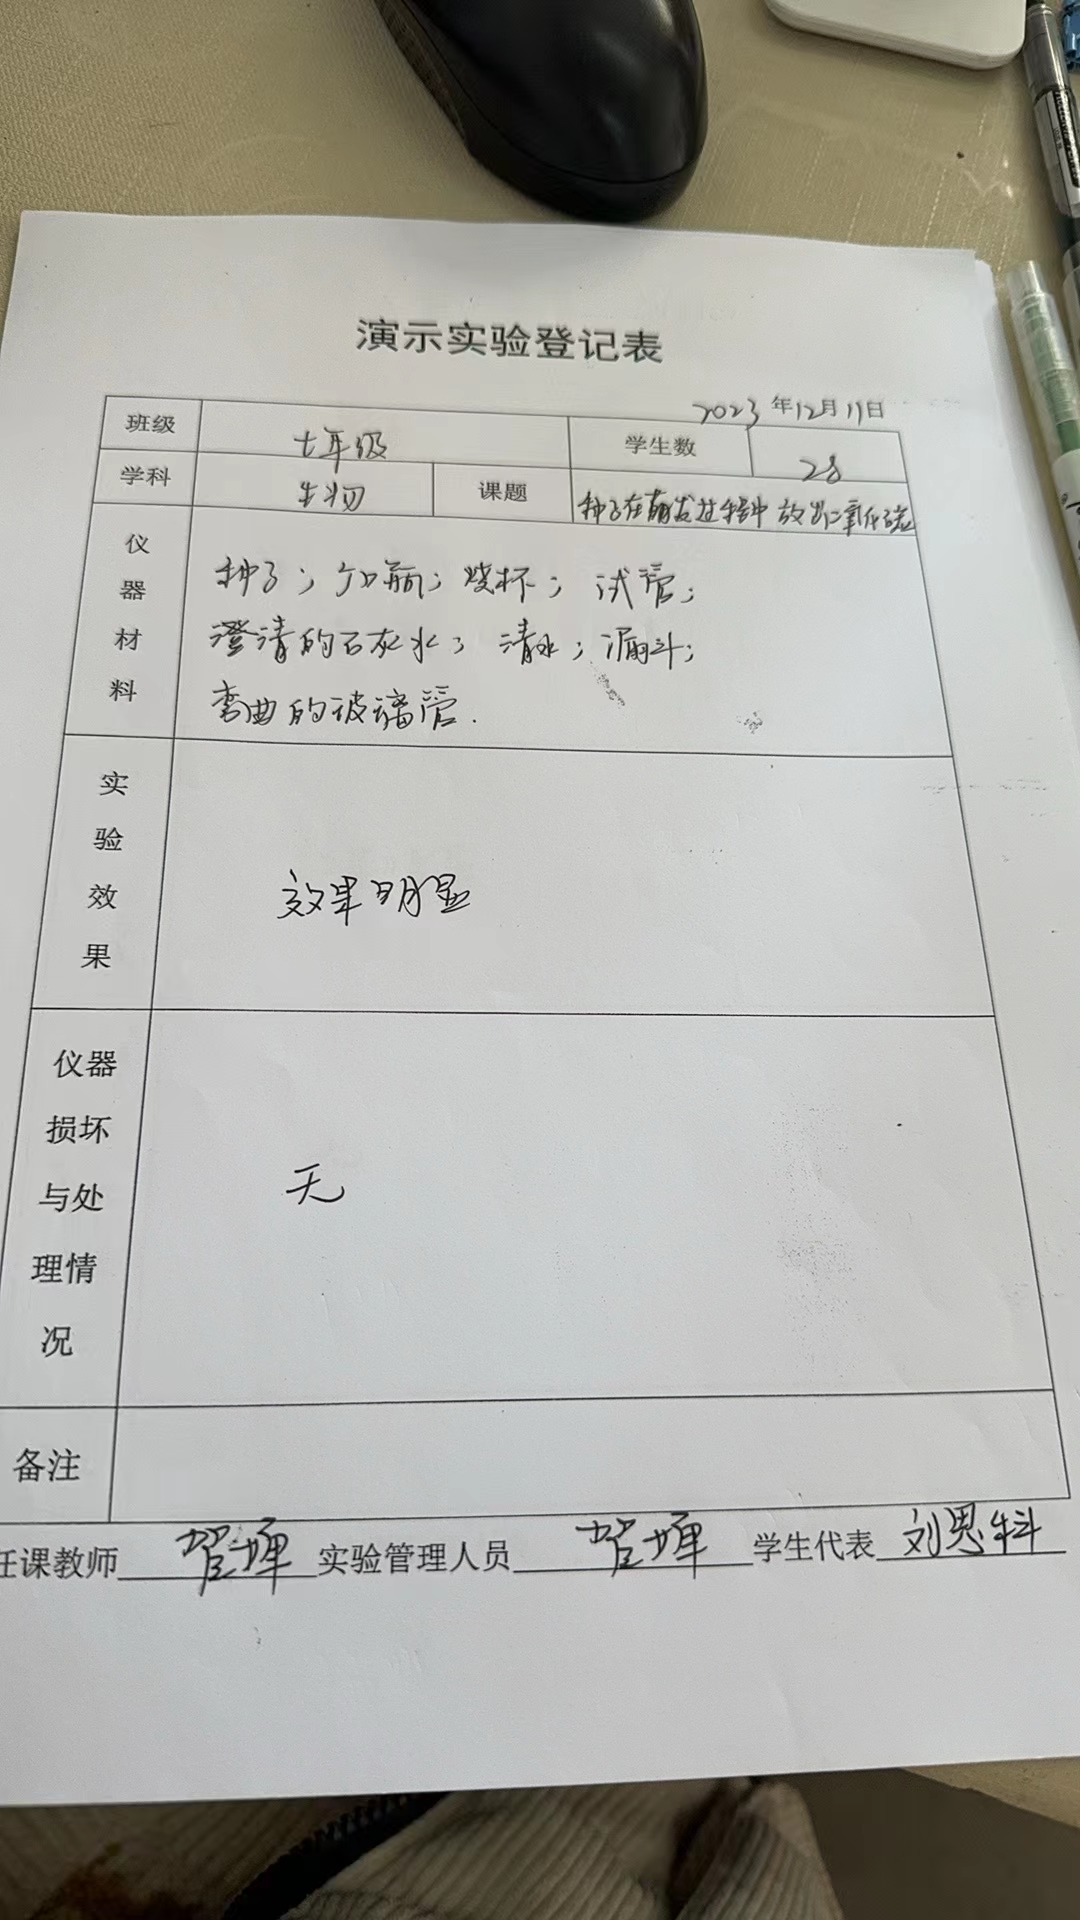 演示实验登记表
2023年12月11日
班级 七年级 学生数 28
学科 生物 课题 种子在萌发过程中放出二氧化碳
仪器材料
种子；广口瓶；烧杯；试管；
澄清的石灰水；清水；漏斗；
弯曲的玻璃管.
实验效果
效果明显
仪器损坏与处理情况
无
备注
任课教师 实验管理人员 学生代表 刘思科